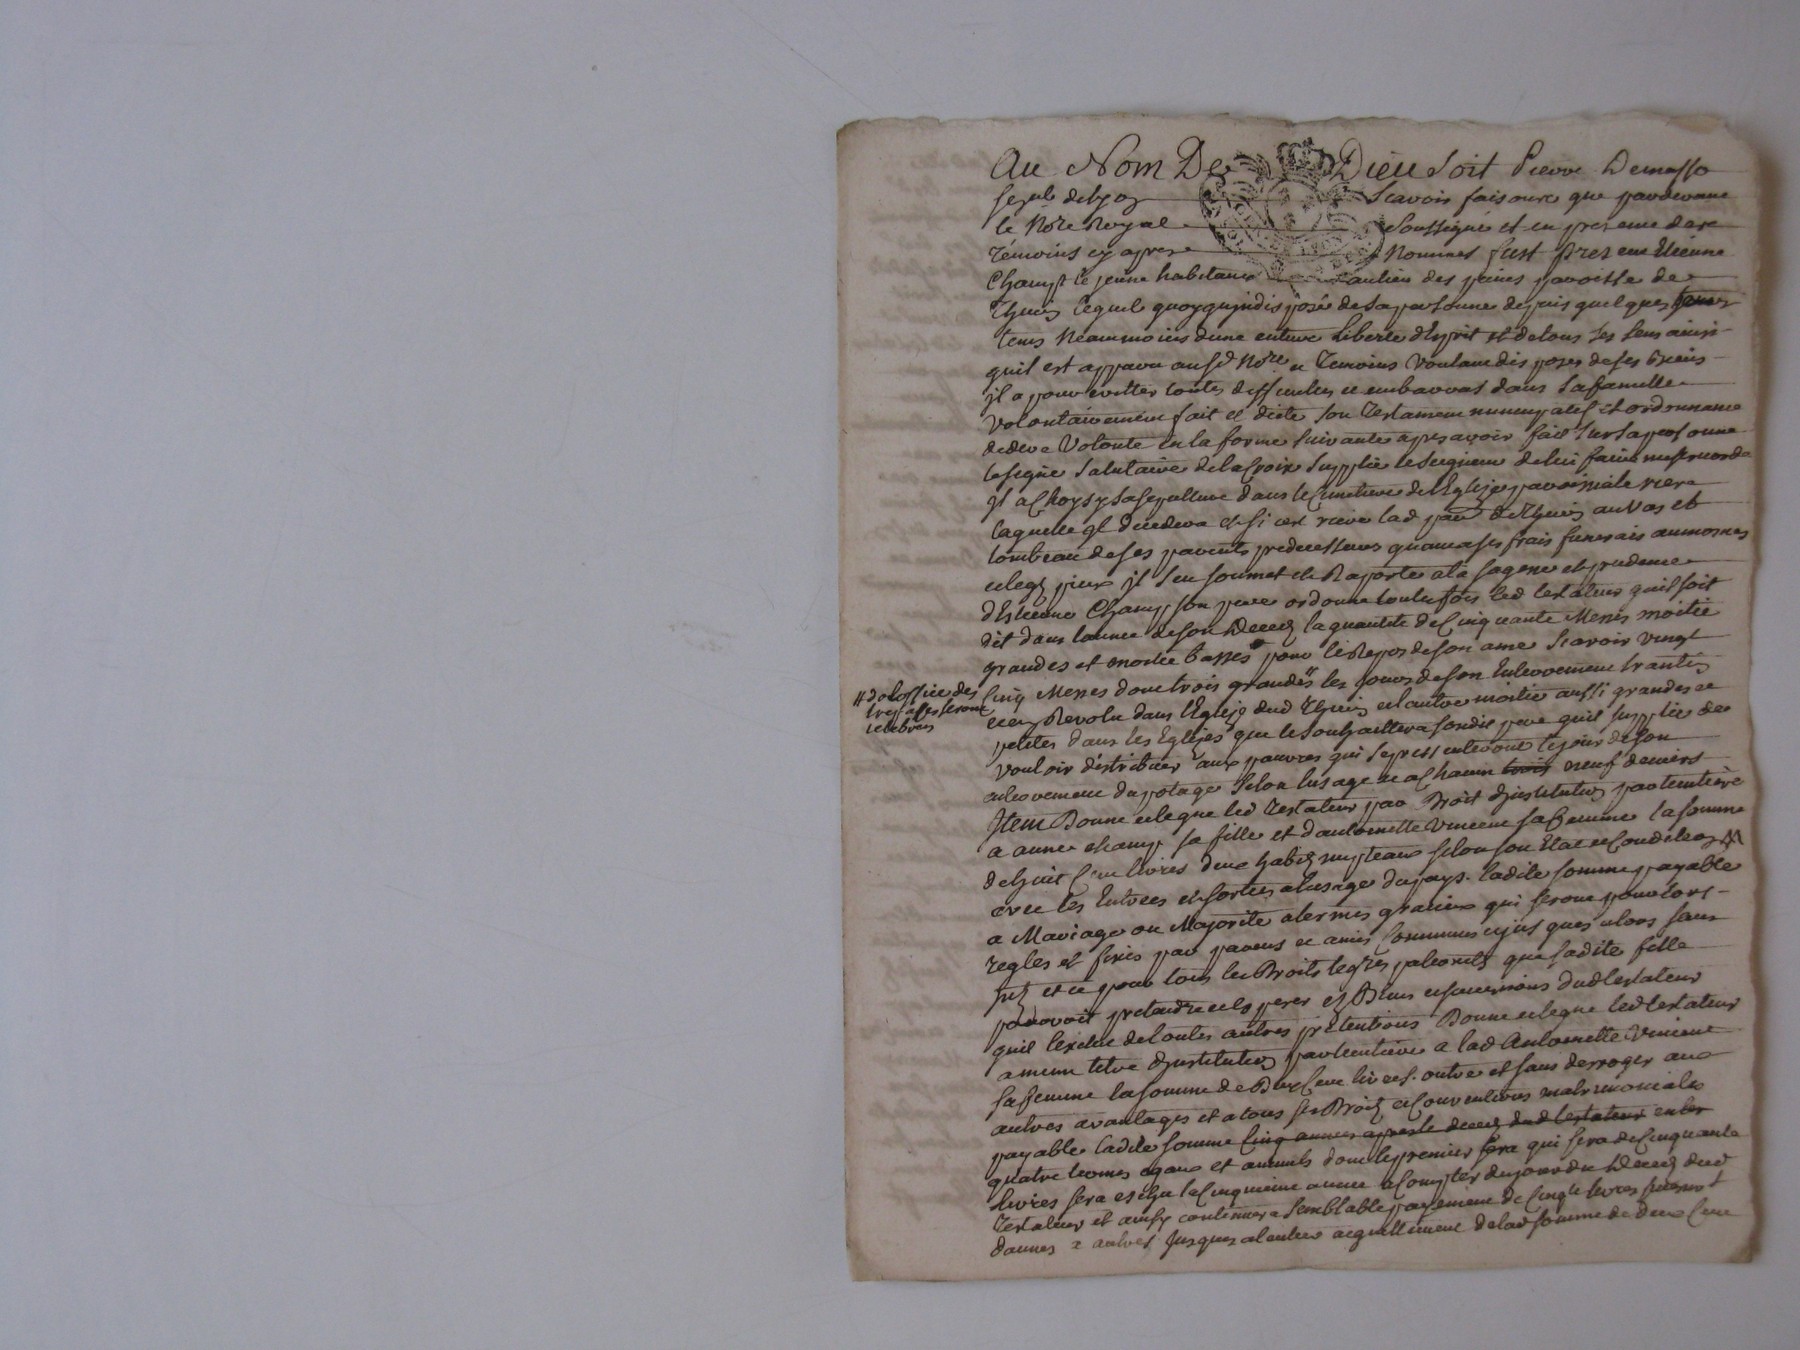 Au Nom De Dieu Soit Pierre Demasso
Scavoir faisons que pardevant
le Nore Royal Soussigné et en presence des
témoins cy apres Nommes fust Present Etienne
Champt le jeune habitant au lieu des paroisse de
lequel quoyqu'indisposé de sa personne depuis quelques
tems Neanmoins dune entiere Liberte d'Esprit et de tous ses sens ainsi
quil est apparu aud Nore et Temoins Voulant disposer de ses biens
il a pour evitter toutes difficultes et embarras dans sa famille
Volontairement fait et dicte son Testament nuncupatif et ordonnance
de dere Volonte en la forme suivante apres avoir fait sur sa personne
le signe Salutaire de la Croix Supplié le Seigneur de lui faire misericorde
Il a Choysy sa sepulture dans le Cimetiere de l'Eglize parroissiale riere
laquelle il decedera et si cest riere lad par au Vas et
tombeau de ses parents predecesseurs quant a ses frais funerais aumosnes
et legz pieux il s'en soumet et Raporte a la sagesse et prudence
d'Estienne Champ son pere ordonne toutesfois led testateur quil soit
dit dans lannee de son Decedz la quantite de Cinquante Messes moitie
grandes et moitie basses pour le Repos de son ame Scavoir vingt
Cinq Messes dont trois grandes # les jours de son Enterrement trantin
# de loffice des
trepasses seront
celebrees
et an Revolu dans l'Eglize dud et lautre moitie aussi grandes et
petites dans les Eglizes que le souhaittera sondit pere quil supplie de
vouloir distribuer aux pauvres qui se pressenteront le jour de son
enterrement du potage Selon lusage et a chacun trois neuf deniers
Item Donne et legue led Testateur par Droit d'institution particuliere
a anne champ sa fille et d'antoinette Vincent sa femme la somme
de huit Cent livres deux habitz nuptiaux selon son Etat et Condition
avec les Entrees et sorties a lusage du pays. ladite somme payable
a Mariage ou Majorite a termes gracieux qui seront pour lors
regles et fixes par parens et amis Communs et jusques alors sans
et ce pour tous les Droits legres paternelz que sadite fille
pourroit pretandre et esperer es Biens et successions dud testateur
quil lexclut de toutes autres prétentions Donne et legue led testateur
a meme titre d'institution particuliere a lad Antoinette Vincent
sa femme la somme de Deux Cent livres. outre et sans derroger aux
autres avantages et a tous ses Droitz et Conventions matrimoniales
payable ladite somme Cinq annees apres le decedz dud testateur en
quatre termes egaux et annuels dont le premier sera qui sera de Cinquante
livres sera eschu la Cinquieme annee a Compter du jour du Decedz dud
Testateur et ainsy continuera semblable payement de Cinqte livres
dannee a autres Jusques a lentier acquittement de lad somme de deux Cent